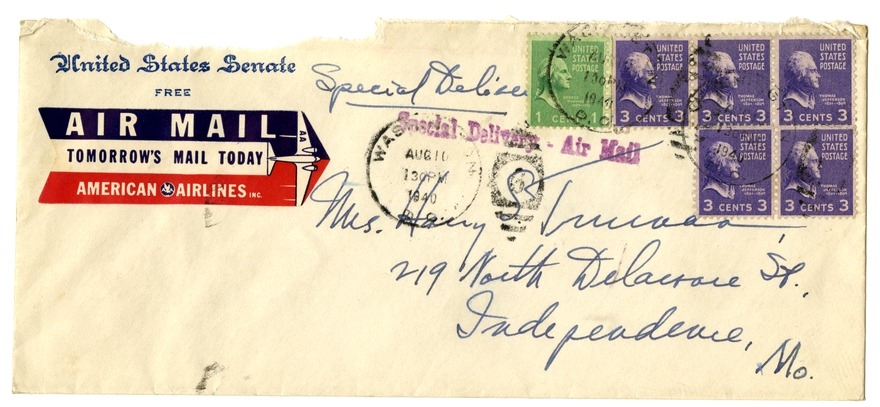 United States Senate
FREE
AIR MAIL
TOMORROW'S MAIL TODAY
AMERICAN AIRLINES INC.
AA
Special Delivery
Special Delivery - Air Mail
1 CENT 1
UNITED STATES POSTAGE
THOMAS JEFFERSON
3 CENTS 3
UNITED STATES POSTAGE
THOMAS JEFFERSON
3 CENTS 3
UNITED STATES POSTAGE
THOMAS JEFFERSON
3 CENTS 3
UNITED STATES POSTAGE
THOMAS JEFFERSON
3 CENTS 3
UNITED STATES POSTAGE
THOMAS JEFFERSON
3 CENTS 3
AUG 10
1 30 PM
1940
D.C.
Mrs. Harry Truman
219 North Delaware St.,
Independence,
Mo.